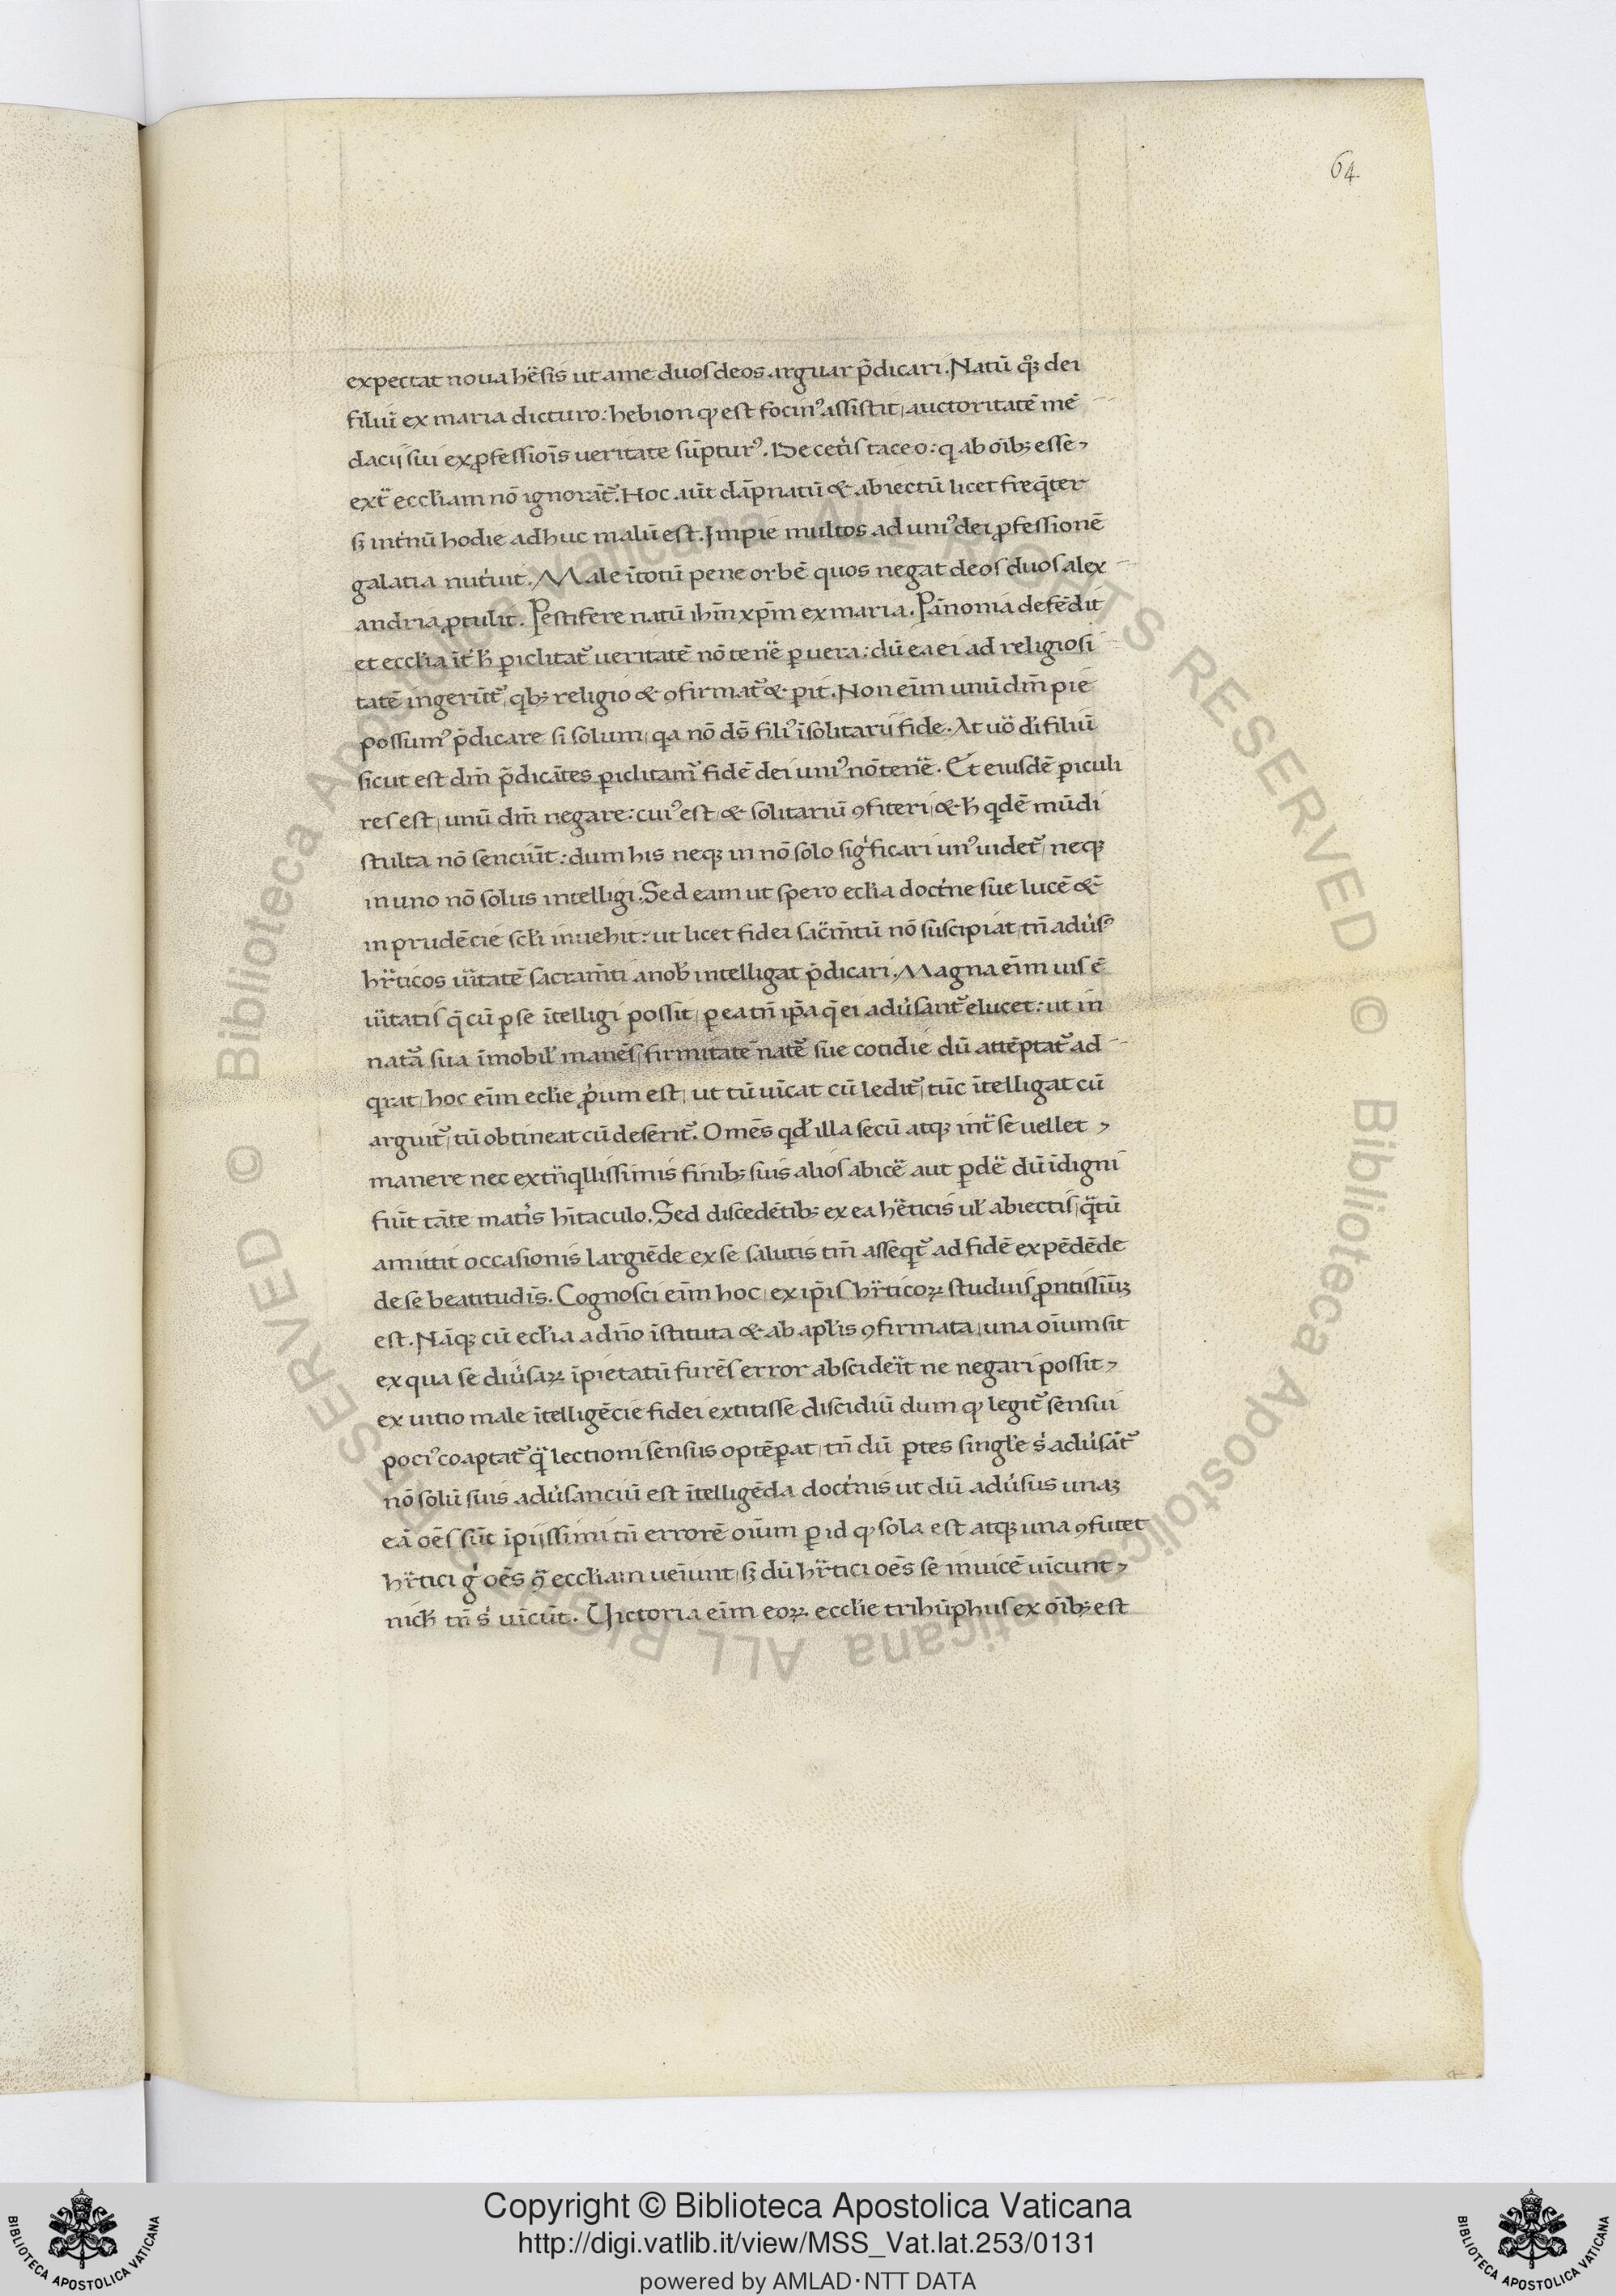 64.
expectat noua hẽsis ut a me duos deos arguar p̃dicari. Natũ qꝫ dei
filiũ ex maria dicturo: hebion qͥ est focinꝰ assistit, auctoritatẽ mẽ
dacij sui ex ꝓfessiõis ueritate sũpturꝰ. De ceťis taceo: q ab oĩbꝫ esse
ext̃ eccƚiam nõ ignorãt᷑. Hoc aũt dãpnatũ & abiectũ licet freq̃ter
sꝫ inťnũ hodie adhuc malũ est. Impie multos ad uniꝰ dei ꝓfessionẽ
galatia nutͥuit. Male ĩ totũ pene orbẽ quos negat deos duos alex
andria ꝓtulit. Pestifere natũ ihm̃ xp̃m ex maria. Pãnonia defẽdit
et eccƚia iť h̃ ꝑiclitat᷑ ueritatẽ nõ tenẽ ꝑ uera: dũ ea ei ad religiosi
tatẽ ingerũt᷑, qͥbꝫ religio & ꝯfirmat᷑ & ꝑit. Non eĩm unũ dm̃ pie
possumꝰ p̃dicare si solum, qͥa nõ ds̃ filiꝰ ĩ solitarij fide. At uõ di filiũ
sicut est dm̃ p̃dicãtes ꝑiclitam᷑ fidẽ dei uniꝰ nõ tenẽ. Et eiusdẽ ꝑiculi
res est, unũ dm̃ negare: cuiꝰ est & solitariũ ꝯfiteri, & h̃ qͥdẽ mũdi
stulta nõ senciũt: dum his neqꝫ in nõ solo sigͥficari unꝰ uidet᷑, neqꝫ
in uno nõ solus intelligi. Sed eam ut spero ecƚia docťne sue lucẽ &
inprudẽcie scƚi inuehit: ut licet fidei sac̃m̃tũ nõ suscipiat, tñ adůsꝰ
hr̃ticos ũitatẽ sacram̃ti a nob̃ intelligat p̃dicari. Magna eĩm uis ẽ
ũitatis q̃ cũ ꝑ se ĩtelligi possit, ꝑ ea tñ ip̃a q̃ ei adůsant᷑ elucet: ut in
nat᷑a sua ĩmobiƚ manẽs, firmitatẽ nat᷑e sue cotidie dũ attẽptat᷑ ad
qͥrat, hoc eĩm ecƚie ꝓͥum est, ut tũ uĩcat cũ ledit᷑, tũc ĩtelligat cũ
arguit᷑, tũ obtineat cũ deserit᷑. Omẽs qͥdẽ illa secũ atqꝫ int̃ se uellet
manere nec ex tñqͥllissimis finibꝫ suis alios abicẽ aut ꝑdẽ dũ ĩdigni
fiũt tãte matͥs hĩtaculo. Sed discedẽtibꝫ ex ea hẽticis uƚ abiectis, q̃tũ
amittit occasionis largiẽde ex se salutis tm̃ asseqͥt᷑ ad fidẽ expẽdẽde
de se beatitudĩs. Cognosci eĩm hoc, ex ip̃is hr̃ticoꝝ studiis ꝓntissiũꝫ
est. Nãqꝫ cũ ecƚia a dño ĩstituta & ab apƚis ꝯfirmata, una oĩum sit
ex qua se diůsaꝝ ĩpietatũ furẽs error abscideĩt ne negari possit
ex uitio male ĩtelligẽcie fidei extitisse discidiũ dum qͥ legit᷑ sensui
pociꝰ coaptat᷑ q̃ lectioni sensus optẽꝑat, tñ dũ ꝑtes singƚe sͥ adůsãt᷑
nõ solũ suis adůsanciũ est ĩtelligẽda docťnis ut dũ adůsus unaꝫ
eã oẽs sũt ĩpijssimi tũ errorẽ oĩum ꝑ id qͥ sola est atqꝫ una ꝯfutet
hr̃tici gͥ oẽs ꝯ̃ eccƚiam ueĩunt, sꝫ dũ hr̃tici oẽs se inuicẽ uĩcunt
nich̃ tñ sͥ uĩcũt. Uictoria eĩm eoꝝ. eccƚie trihũphus ex oĩbꝫ est
Copyright © Biblioteca Apostolica Vaticana
http://digi.vatlib.it/view/MSS_Vat.lat.253/0131
powered by AMLAD·NTT DATA